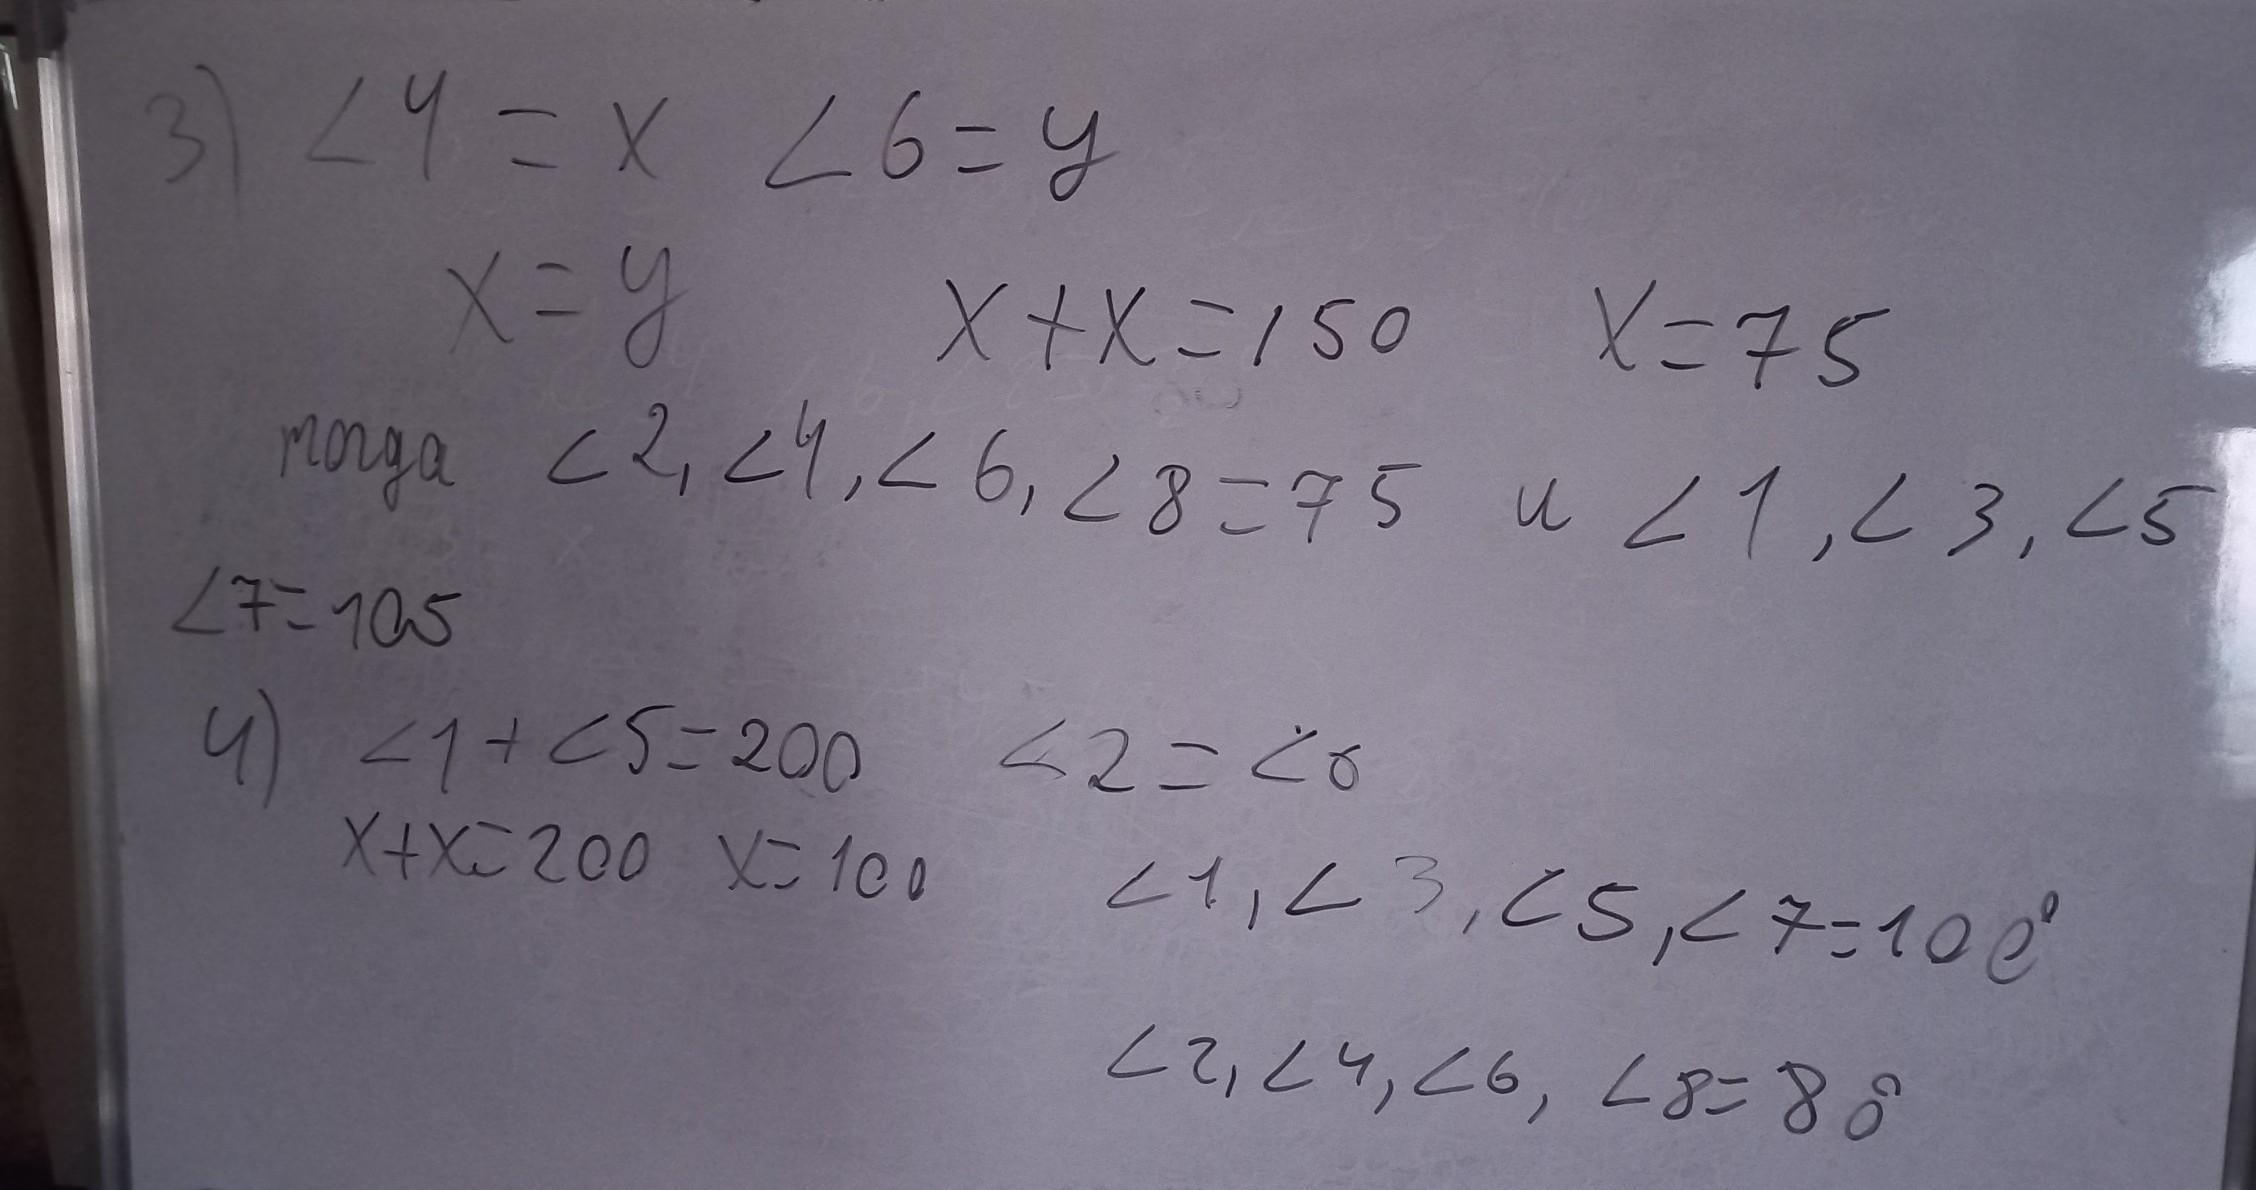 3) ∠4 = x ∠6 = y
x = y x + x = 150 x = 75
тогда ∠2, ∠4, ∠6, ∠8 = 75 и ∠1, ∠3, ∠5
∠7 = 105
4) ∠1 + ∠5 = 200 ∠2 = ∠6
x + x = 200 x = 100 ∠1, ∠3, ∠5, ∠7 = 100°
∠2, ∠4, ∠6, ∠8 = 80°